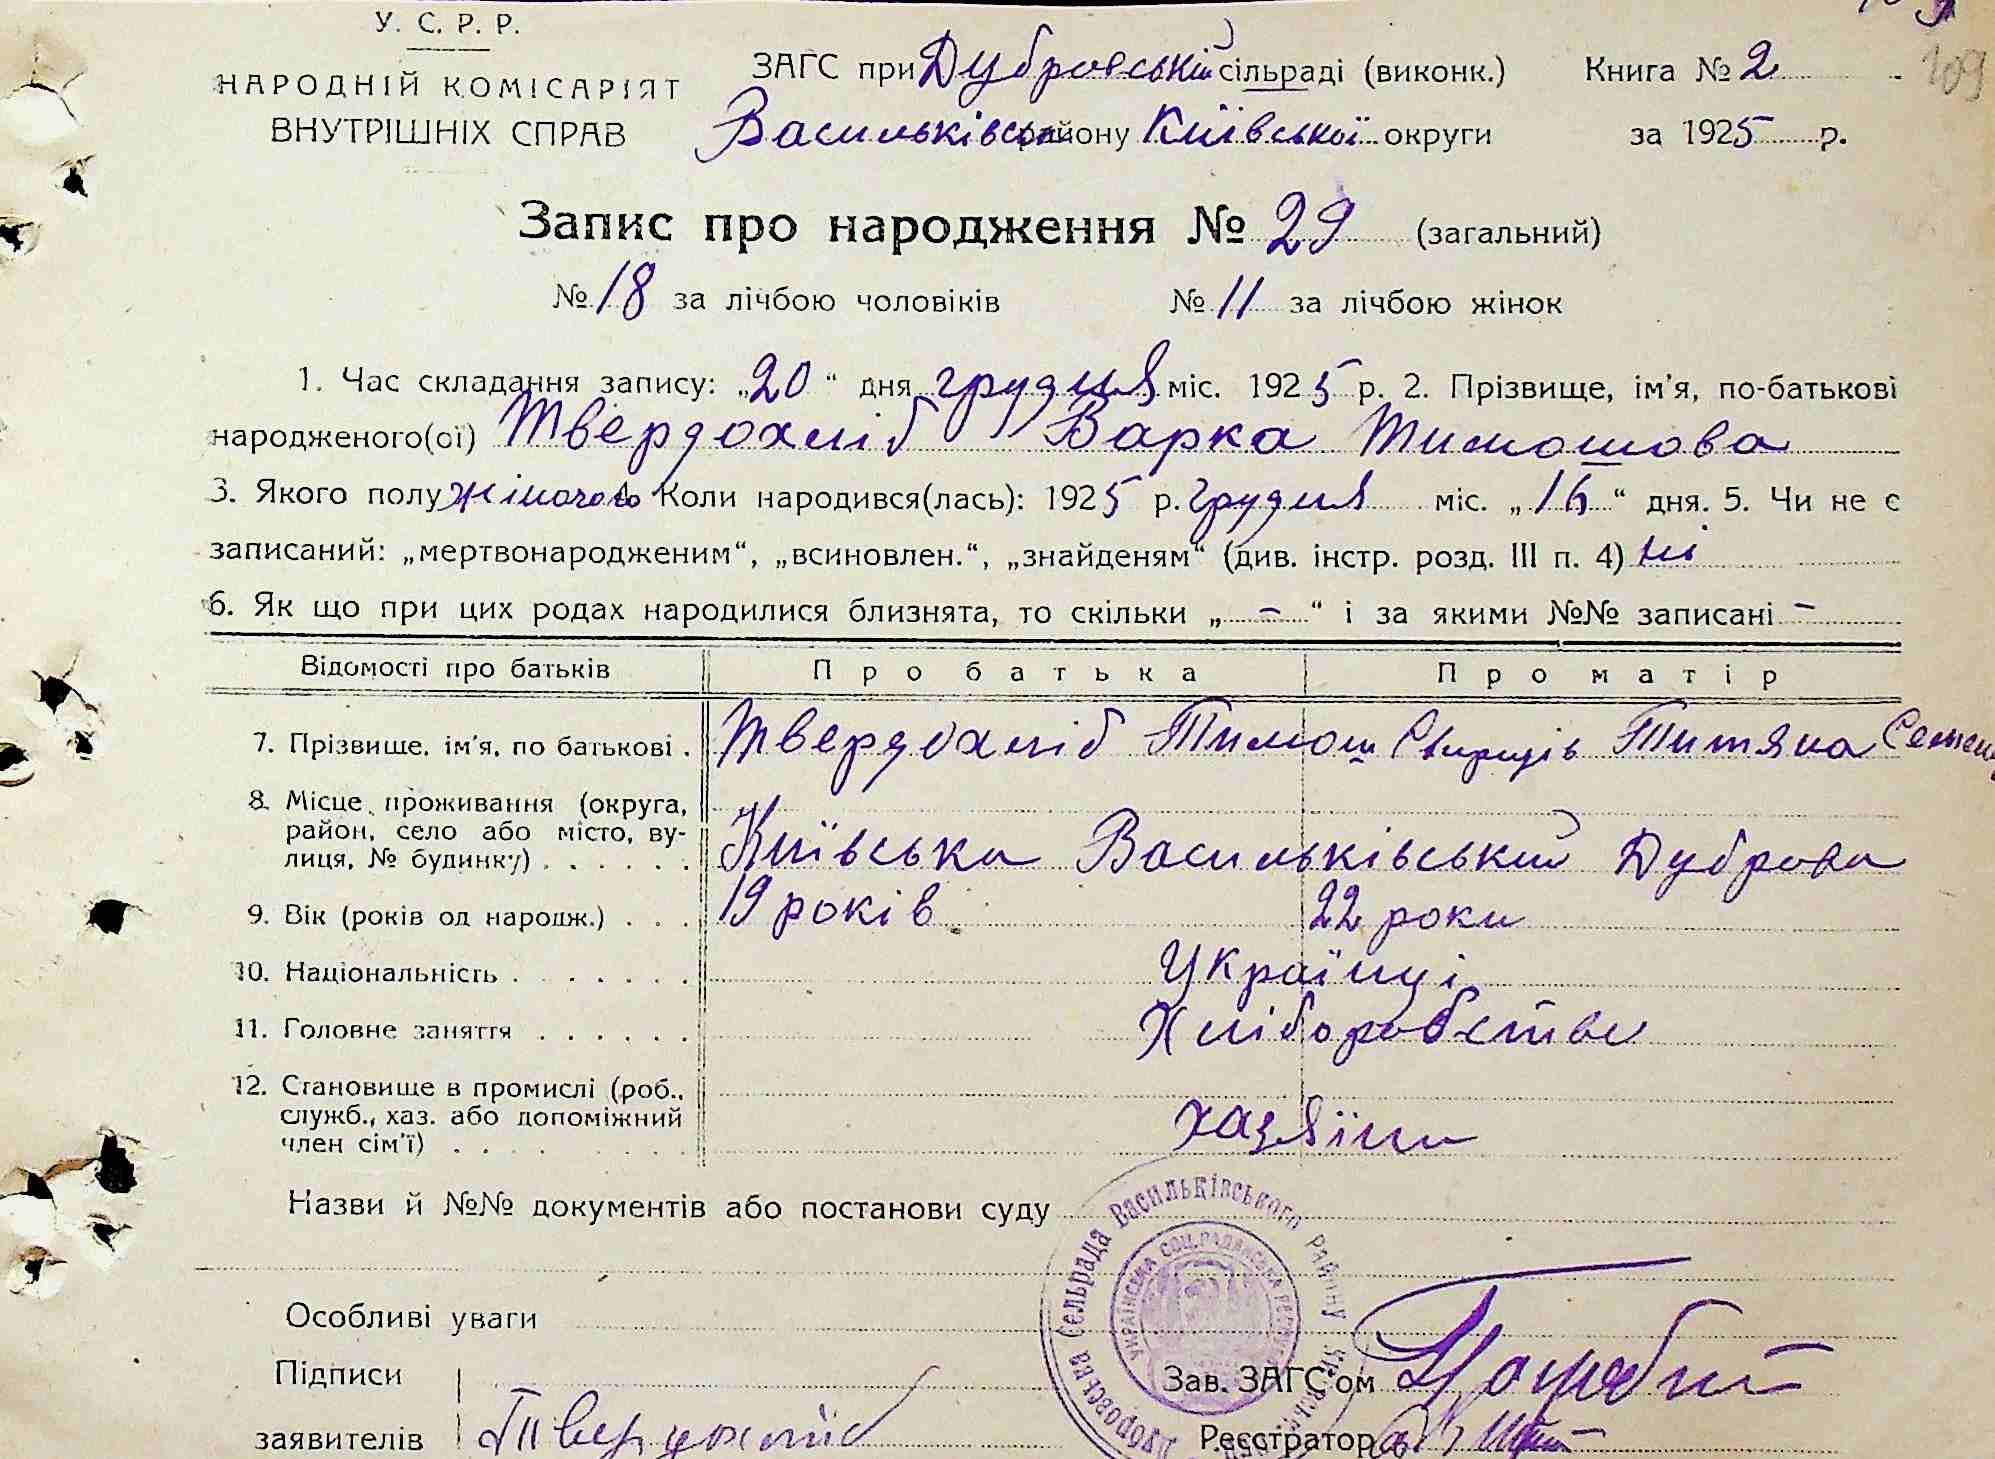 У. С. Р. Р.
НАРОДНІЙ КОМІСАРІЯТ
ВНУТРІШНІХ СПРАВ
ЗАГС при Дубровській сільраді (виконк.) Книга № 2
109
Васильківськ району Київської округи за 1925 р.
Запис про народження № 29 (загальний)
№ 18 за лічбою чоловіків № 11 за лічбою жінок
1. Час складання запису: „20“ дня грудня міс. 1925 р. 2. Прізвище, ім'я, по-батькові
народженого(ої) Твердохліб Варка Тимошова
3. Якого полу жіночого 4. Коли народився(лась): 1925 р. грудня міс. „16“ дня. 5. Чи не є
записаний: „мертвонародженим“, „всиновлен.“, „знайденям“ (див. інстр. розд. III п. 4) ні
6. Як що при цих родах народилися близнята, то скільки „ - “ і за якими №№ записані -
Відомості про батьків Про батька Про матір
7. Прізвище, ім'я, по батькові . Твердохліб Тимош Свиридів Титяна Семен
8. Місце проживання (округа,
район, село або місто, ву-
лиця, № будинку) . . . . . . Київська Васильківський Дуброва
9. Вік (років од народж.) . . . 19 років 22 роки
10. Національність . . . . . . Українці
11. Головне заняття . . . . . . Хліборобство
12. Становище в промислі (роб.,
служб., хаз. або допоміжний
член сім'ї) . . . . . . хазяїни
Назви й №№ документів або постанови суду
Дубровська Сельрада Васильківського району
УКРАЇНСЬКА СОЦ. РАДЯНСЬКА
Особливі уваги
Підписи Зав. ЗАГС'ом
заявителів Твердохліб Реєстратор